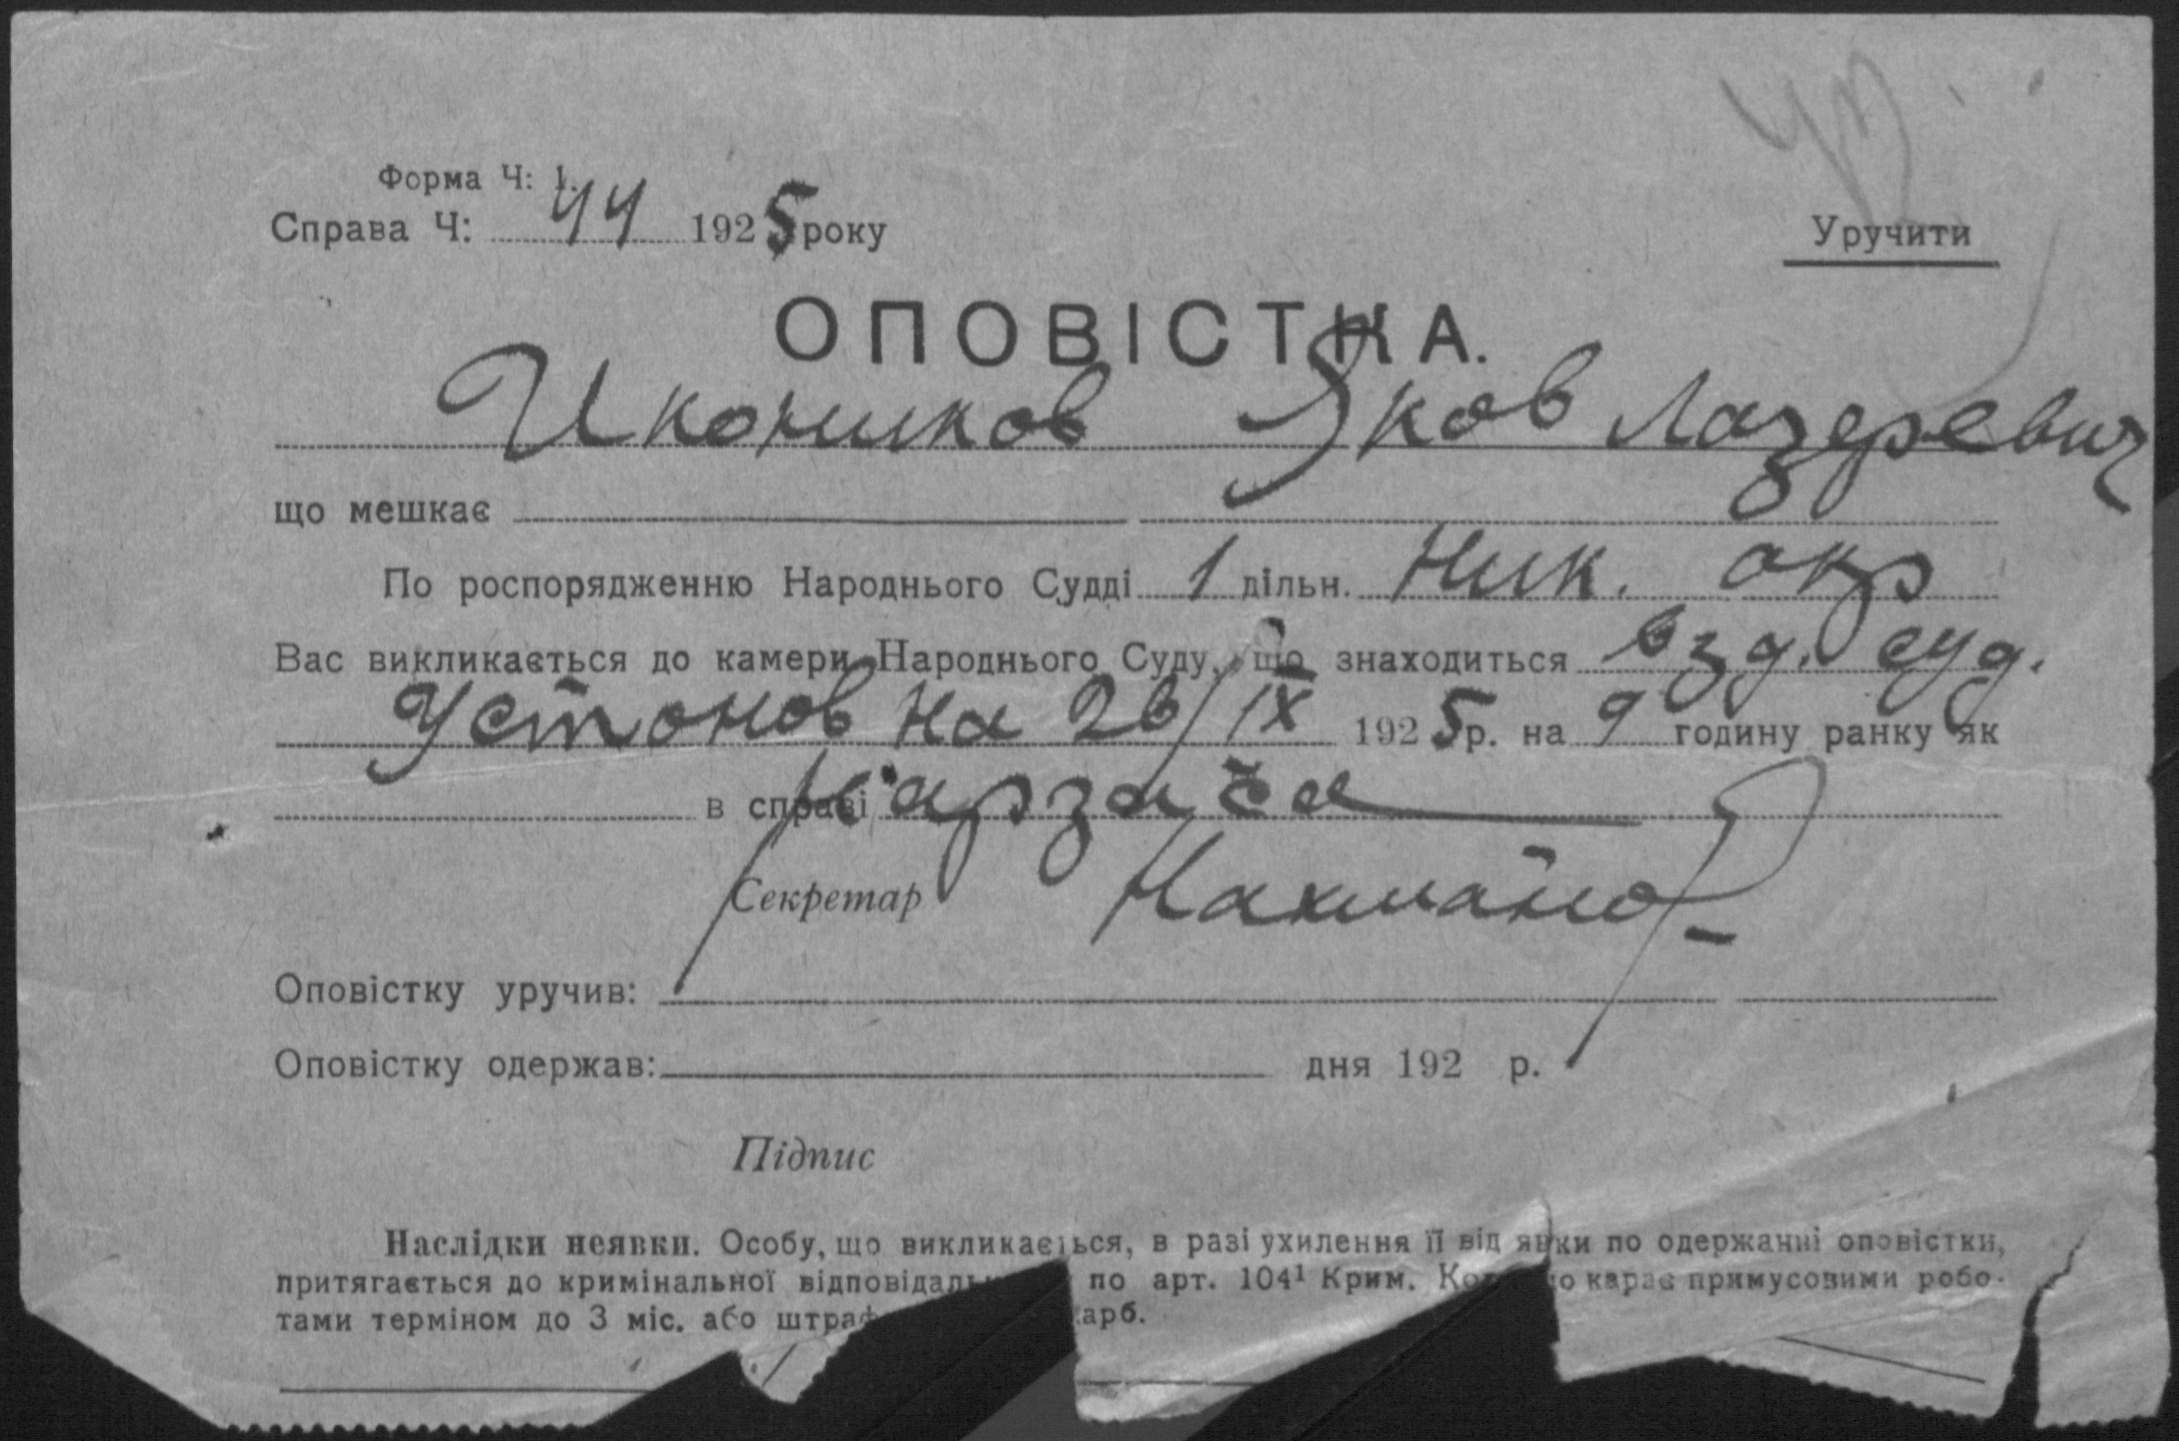 Форма Ч: 1.
Справа Ч: 44 1925 року
Уручити
ОПОВІСТКА.
Икоников Яков Лазеревич
що мешкає
По роспорядженню Народнього Судді 1 дільн. Ник. окр
Вас викликається до камери Народнього Суду, що знаходиться взд. суд.
Устонов на 26/IX 1925 р. на 9 годину ранку як
в справі
Секретар
Оповістку уручив:
Оповістку одержав: дня 192 р.
Підпис
Наслідки неявки. Особу, що викликається, в разі ухилення її від явки по одержанні оповістки,
притягається до кримінальної відповідаль по арт. 104¹ Крим. Ко о карає примусовими робо-
тами терміном до 3 міс. або штраф карб.